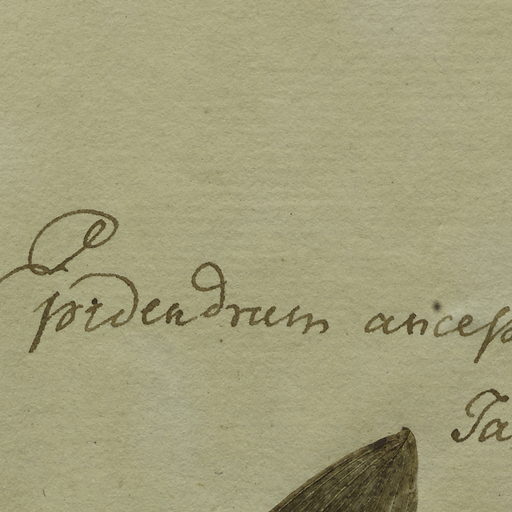 Epidendrum anceps
Ja